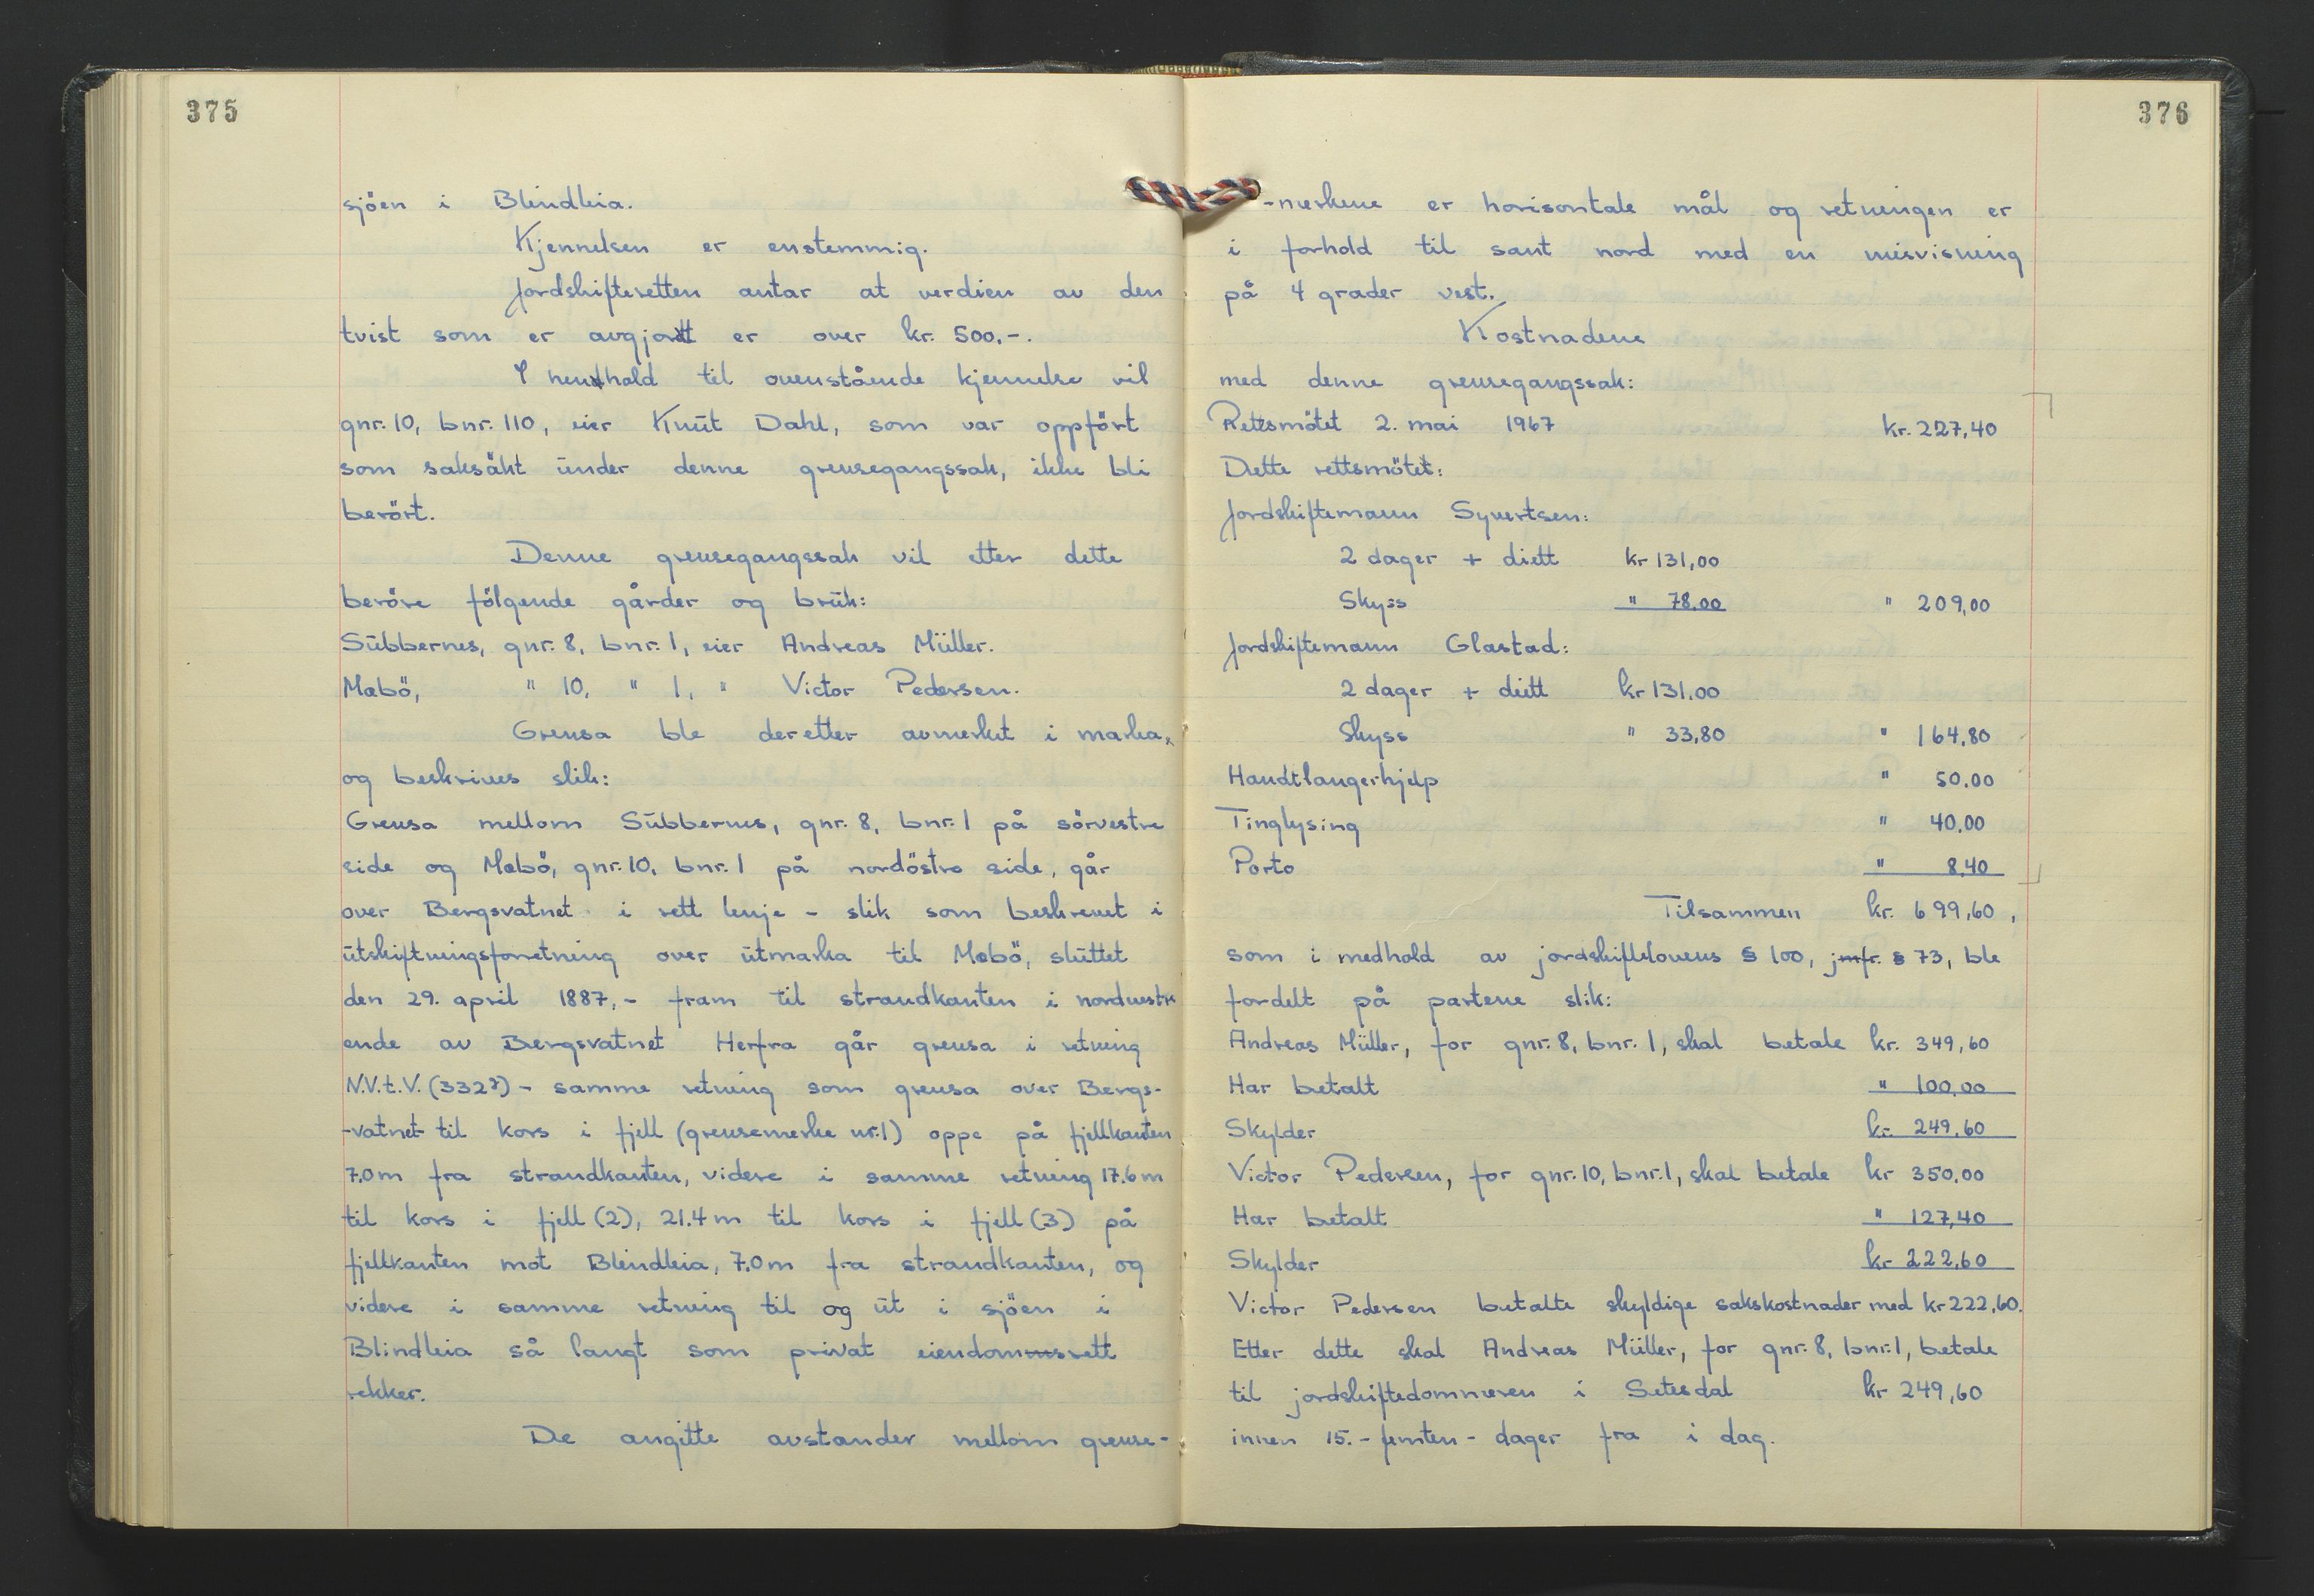 375
sjöen i Blindleia.
Kjennelsen er enstemmig.
Jordskifteretten antar at verdien av den
tvist som er avgjort er over kr. 500.-.
I henhold til ovenstående kjennelse vil
gnr. 10, bnr. 110, eier Knut Dahl, som var oppfört
som saksökt under denne grensegangssak, ikke bli
berört.
Denne grensegangssak vil etter dette
beröre fölgende gårder og bruk:
Subbernes, gnr. 8, bnr. 1, eier Andreas Müller.
Mæbö, " 10, " 1, " Victor Pedersen.
Grensa ble deretter avmerket i marka,
og beskrives slik:
Grensa mellom Subbernes, gnr. 8, bnr. 1 på sörvestre
side og Mæbö, gnr. 10, bnr. 1 på nordöstre side, går
over Bergsvatnet i rett lenje - slik som beskrevet i
utskiftningsforretning over utmarka til Mæbö, sluttet
den 29. april 1887, - fram til strandkanten i nordvestre
ende av Bergsvatnet Herfra går grensa i retning
N.V.t.V. (332⁷) - samme retning som grensa over Bergs-
-vatnet til kors i fjell (grensemerke nr. 1) oppe på fjellkanten
7.0 m fra strandkanten, videre i samme retning 17.6 m
til kors i fjell (2), 21.4 m til kors i fjell (3) på
fjellkanten mot Blindleia, 7.0 m fra strandkanten, og
videre i samme retning til og ut i sjöen i
Blindleia så langt som privat eiendomsrett
rekker.
De angitte avstander mellom grense-
376
-merkene er horisontale mål og retningen er
i forhold til sant nord med en misvisning
på 4 grader vest.
Kostnadene
med denne grensegangssak:
Rettsmötet 2. mai 1967 kr. 227,40
Dette rettsmötet:
Jordskiftemann Syvertsen:
2 dager + diett kr 131,00
Skyss " 78,00 " 209,00
Jordskiftemann Glastad:
2 dager + diett kr 131.00
Skyss " 33,80 " 164,80
Handtlangerhjelp " 50.00
Tinglysing " 40.00
Porto " 8,40
Tilsammen kr. 699,60,
som i medhold av jordskiftelovens § 100, jmfr. § 73, ble
fordelt på partene slik:
Andreas Müller, for gnr. 8, bnr. 1, skal betale kr. 349,60
Har betalt " 100,00
Skylder kr. 249,60
Victor Pedersen, for gnr. 10, bnr. 1, skal betale kr 350,00
Har betalt " 127,40
Skylder kr 222,60
Victor Pedersen betalte skyldige sakskostnader med kr 222,60.
Etter dette skal Andreas Müller, for gnr. 8, bnr. 1, betale
til jordskiftedommeren i Setesdal kr 249,60
innen 15. - femten - dager fra i dag.